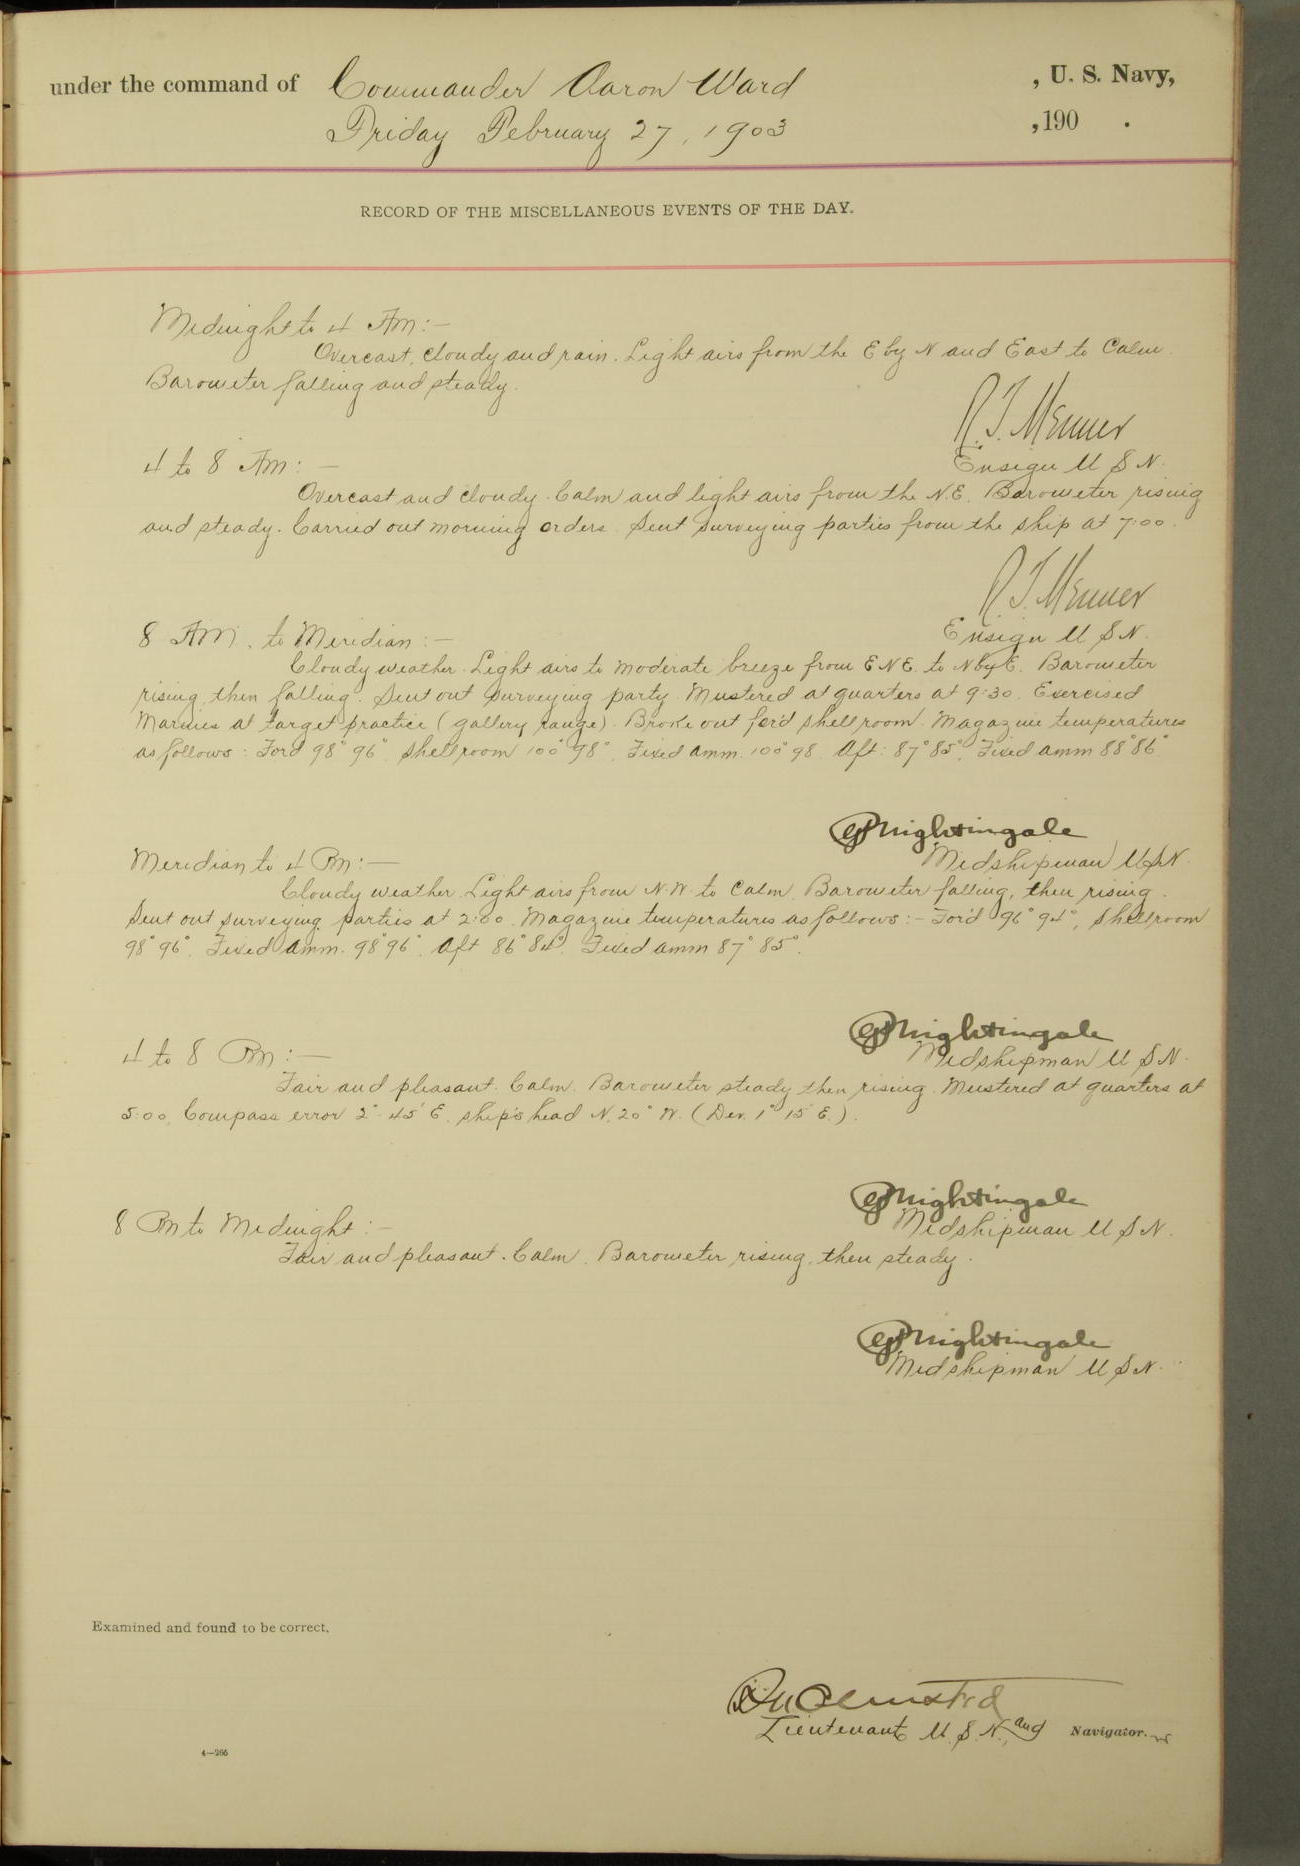 under the command of Commander Aaron Ward , U. S. Navy,
Friday February 27, 1903 , 190 .
RECORD OF THE MISCELLANEOUS EVENTS OF THE DAY.
Midnight to 4 Am:-
Overcast, cloudy and rain. Light airs from the E by N and East to Calm.
Barometer falling and steady.
R. T. Menner
Ensign U S N.
4 to 8 Am: -
Overcast and cloudy. Calm and light airs from the N.E. Barometer rising
and steady. Carried out morning orders. Sent surveying parties from the ship at 7:00.
R. T. Menner
Ensign U S N.
8 AM. to Meridian:-
Cloudy weather. Light airs to moderate breeze from E N E. to N by E. Barometer
rising, then falling. Sent out surveying party. Mustered at quarters at 9:30. Exercised
Marines at target practice (gallery range). Broke out for'd shell room. Magazine temperatures
as follows: For'd 98° 96°, Shellroom 100° 98°, Fixed amm. 100° 98. Aft: 87° 85°, Fixed amm 88° 86°
Nightingale
Midshipman U S N.
Meridian to 4 Pm:-
Cloudy weather. Light airs from N.W. to Calm. Barometer falling, then rising.
Sent out surveying parties at 2:00. Magazine temperatures as follows:- For'd 96° 94°, Shellroom
98° 96°. Fixed amm. 98° 96°. Aft 86° 84°. Fixed amm 87° 85°.
Nightingale
Midshipman U S N.
4 to 8 Pm:-
Fair and pleasant. Calm. Barometer steady then rising. Mustered at quarters at
5:00. Compass error 2° 45' E. ship's head N. 20° W. (Dev. 1° 15' E.).
Nightingale
Midshipman U S N.
8 Pm to Midnight:-
Fair and pleasant. Calm. Barometer rising, then steady.
Nightingale
Midshipman U S N.
Examined and found to be correct.
Olmsted
Lieutenant U. S. N., and Navigator.
4—266